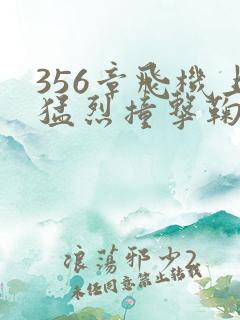 356章飛機上
猛烈撞擊鞠
浪蕩邪少2
未任同意禁止转载